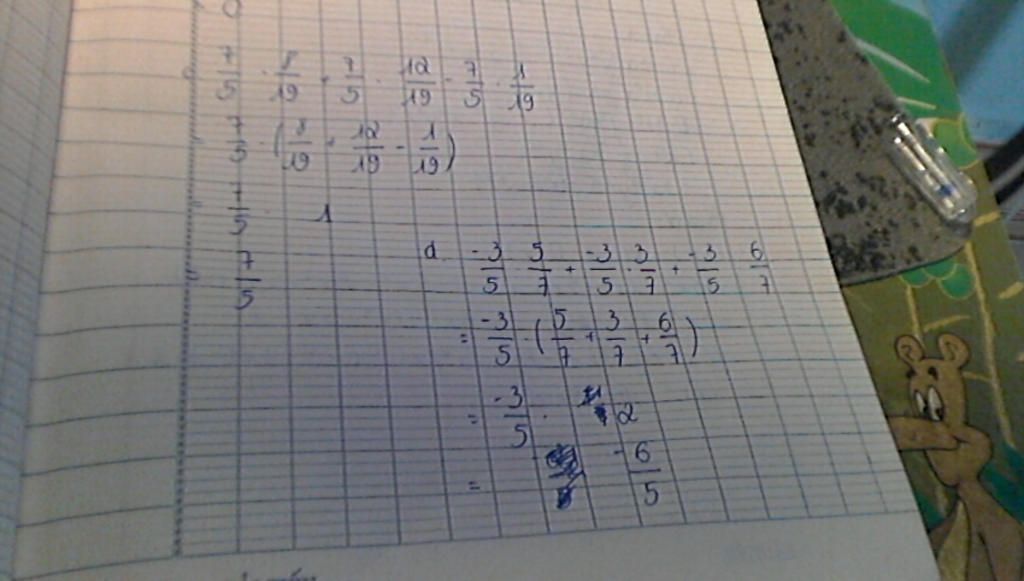 7/5 · 8/19 + 7/5 · 12/19 - 7/5 · 1/19
= 7/5 · (8/19 + 12/19 - 1/19)
= 7/5 · 1
= 7/5
d. -3/5 · 5/7 + -3/5 · 3/7 + -3/5 · 6/7
= -3/5 · (5/7 + 3/7 + 6/7)
= -3/5 · 2
= -6/5